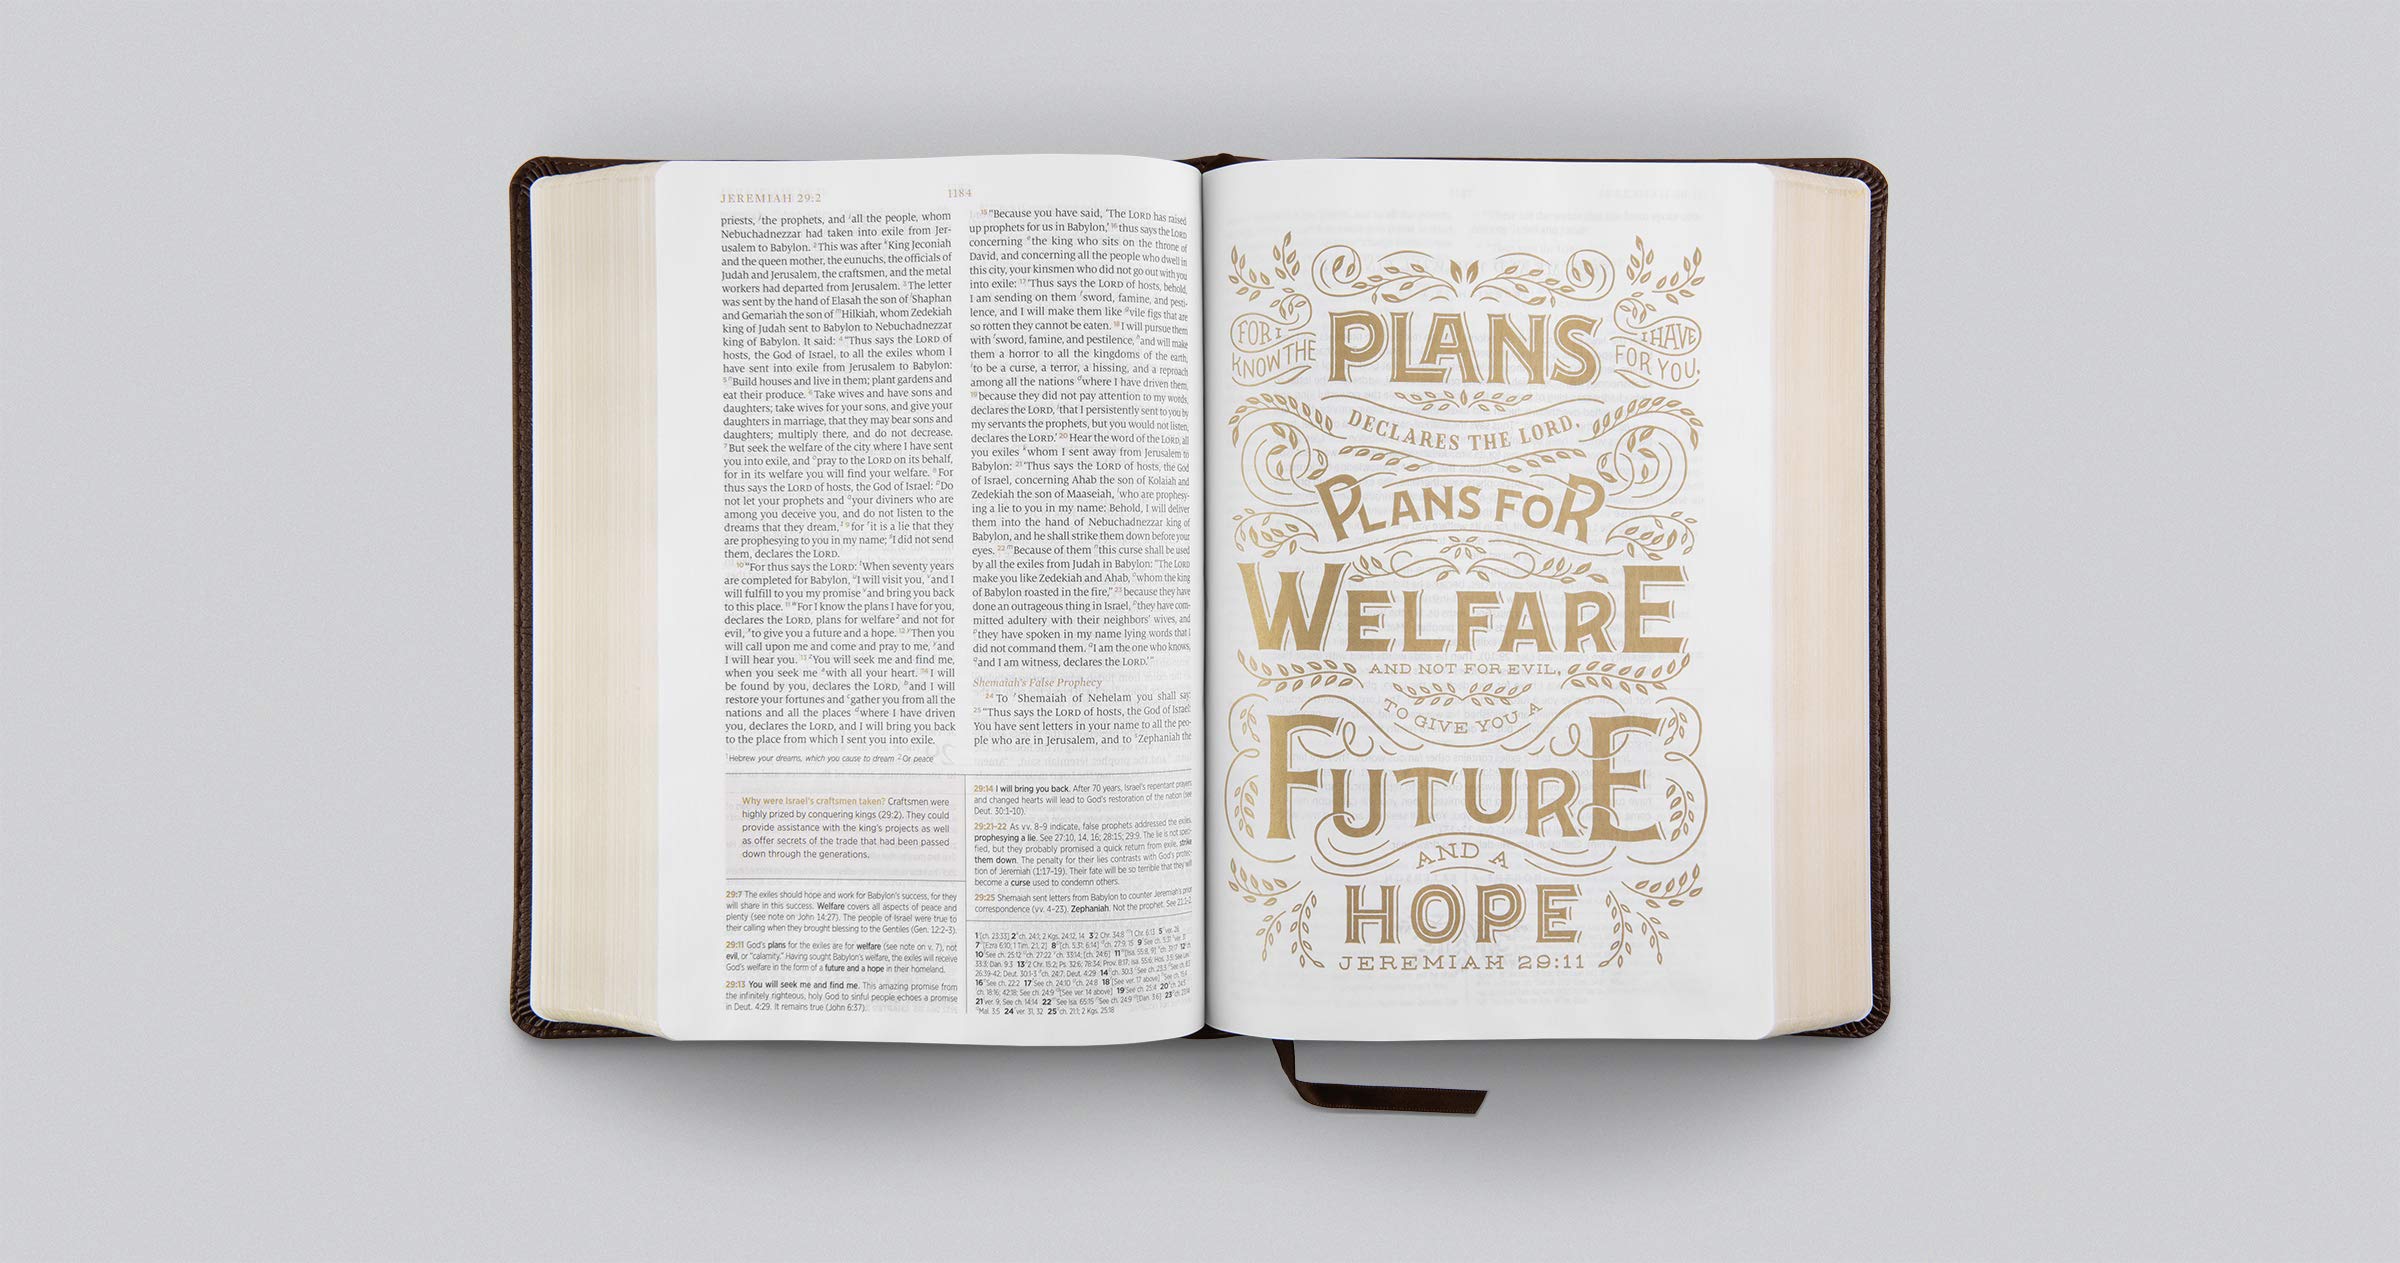 JEREMIAH 29:2
1184
priests, ʲthe prophets, and ⁱall the people, whom
Nebuchadnezzar had taken into exile from Jer-
usalem to Babylon. ²This was after ᵏKing Jeconiah
and the queen mother, the eunuchs, the officials of
Judah and Jerusalem, the craftsmen, and the metal
workers had departed from Jerusalem. ³The letter
was sent by the hand of Elasah the son of ˡShaphan
and Gemariah the son of ᵐHilkiah, whom Zedekiah
king of Judah sent to Babylon to Nebuchadnezzar
king of Babylon. It said: ⁴“Thus says the LORD of
hosts, the God of Israel, to all the exiles whom I
have sent into exile from Jerusalem to Babylon:
⁵ⁿBuild houses and live in them; plant gardens and
eat their produce. ⁶Take wives and have sons and
daughters; take wives for your sons, and give your
daughters in marriage, that they may bear sons and
daughters; multiply there, and do not decrease.
⁷But seek the welfare of the city where I have sent
you into exile, and ᵒpray to the LORD on its behalf,
for in its welfare you will find your welfare. ⁸For
thus says the LORD of hosts, the God of Israel: ᵖDo
not let your prophets and ᵍyour diviners who are
among you deceive you, and do not listen to the
dreams that they dream,¹ ⁹for ʳit is a lie that they
are prophesying to you in my name; ˢI did not send
them, declares the LORD.
¹⁰“For thus says the LORD: ᵗWhen seventy years
are completed for Babylon, ᵘI will visit you, ᵛand I
will fulfill to you my promise ᵛand bring you back
to this place. ¹¹ʷFor I know the plans I have for you,
declares the LORD, plans for welfare² and not for
evil, ˣto give you a future and a hope. ¹²ʸThen you
will call upon me and come and pray to me, ʸand
I will hear you. ¹³ᶻYou will seek me and find me,
when you seek me ᵃwith all your heart. ¹⁴I will
be found by you, declares the LORD, ᵇand I will
restore your fortunes and ᶜgather you from all the
nations and all the places ᵈwhere I have driven
you, declares the LORD, and I will bring you back
to the place from which I sent you into exile.
¹Hebrew your dreams, which you cause to dream ²Or peace
¹⁵“Because you have said, ‘The LORD has raised
up prophets for us in Babylon,’ ¹⁶thus says the LORD
concerning ᵉthe king who sits on the throne of
David, and concerning all the people who dwell in
this city, your kinsmen who did not go out with you
into exile: ¹⁷‘Thus says the LORD of hosts, behold,
I am sending on them ᶠsword, famine, and pesti-
lence, and I will make them like ᵍvile figs that are
so rotten they cannot be eaten. ¹⁸I will pursue them
with ᶠsword, famine, and pestilence, ʰand will make
them a horror to all the kingdoms of the earth,
ⁱto be a curse, a terror, a hissing, and a reproach
among all the nations ᵈwhere I have driven them,
¹⁹because they did not pay attention to my words,
declares the LORD, ʲthat I persistently sent to you by
my servants the prophets, but you would not listen,
declares the LORD.’ ²⁰Hear the word of the LORD, all
you exiles ᵏwhom I sent away from Jerusalem to
Babylon: ²¹‘Thus says the LORD of hosts, the God
of Israel, concerning Ahab the son of Kolaiah and
Zedekiah the son of Maaseiah, ˡwho are prophesy-
ing a lie to you in my name: Behold, I will deliver
them into the hand of Nebuchadnezzar king of
Babylon, and he shall strike them down before your
eyes. ²²ᵐBecause of them ⁿthis curse shall be used
by all the exiles from Judah in Babylon: “The LORD
make you like Zedekiah and Ahab, ᵒwhom the king
of Babylon roasted in the fire,” ²³because they have
done an outrageous thing in Israel, ᵖthey have com-
mitted adultery with their neighbors’ wives, and
ᵖthey have spoken in my name lying words that I
did not command them. ᵍI am the one who knows,
ᵍand I am witness, declares the LORD.’”
Shemaiah’s False Prophecy
²⁴To ʳShemaiah of Nehelam you shall say:
²⁵“Thus says the LORD of hosts, the God of Israel:
You have sent letters in your name to all the peo-
ple who are in Jerusalem, and to ˢZephaniah the
Why were Israel’s craftsmen taken? Craftsmen were
highly prized by conquering kings (29:2). They could
provide assistance with the king’s projects as well
as offer secrets of the trade that had been passed
down through the generations.
29:7 The exiles should hope and work for Babylon’s success, for they
will share in this success. Welfare covers all aspects of peace and
plenty (see note on John 14:27). The people of Israel were true to
their calling when they brought blessing to the Gentiles (Gen. 12:2–3).
29:11 God’s plans for the exiles are for welfare (see note on v. 7), not
evil, or “calamity.” Having sought Babylon’s welfare, the exiles will receive
God’s welfare in the form of a future and a hope in their homeland.
29:13 You will seek me and find me. This amazing promise from
the infinitely righteous, holy God to sinful people echoes a promise
in Deut. 4:29. It remains true (John 6:37).
29:14 I will bring you back. After 70 years, Israel’s repentant prayers
and changed hearts will lead to God’s restoration of the nation (see
Deut. 30:1–10).
29:21–22 As vv. 8–9 indicate, false prophets addressed the exiles,
prophesying a lie. See 27:10, 14, 16; 28:15; 29:9. The lie is not speci-
fied, but they probably promised a quick return from exile. strike
them down. The penalty for their lies contrasts with God’s protec-
tion of Jeremiah (1:17–19). Their fate will be so terrible that they will
become a curse used to condemn others.
29:25 Shemaiah sent letters from Babylon to counter Jeremiah’s prior
correspondence (vv. 4–23). Zephaniah. Not the prophet. See 21:1–2.
FOR I
KNOW THE
PLANS
I HAVE
FOR YOU,
DECLARES THE LORD,
PLANS FOR
WELFARE
AND NOT FOR EVIL,
TO GIVE YOU A
FUTURE
AND A
HOPE
JEREMIAH 29:11